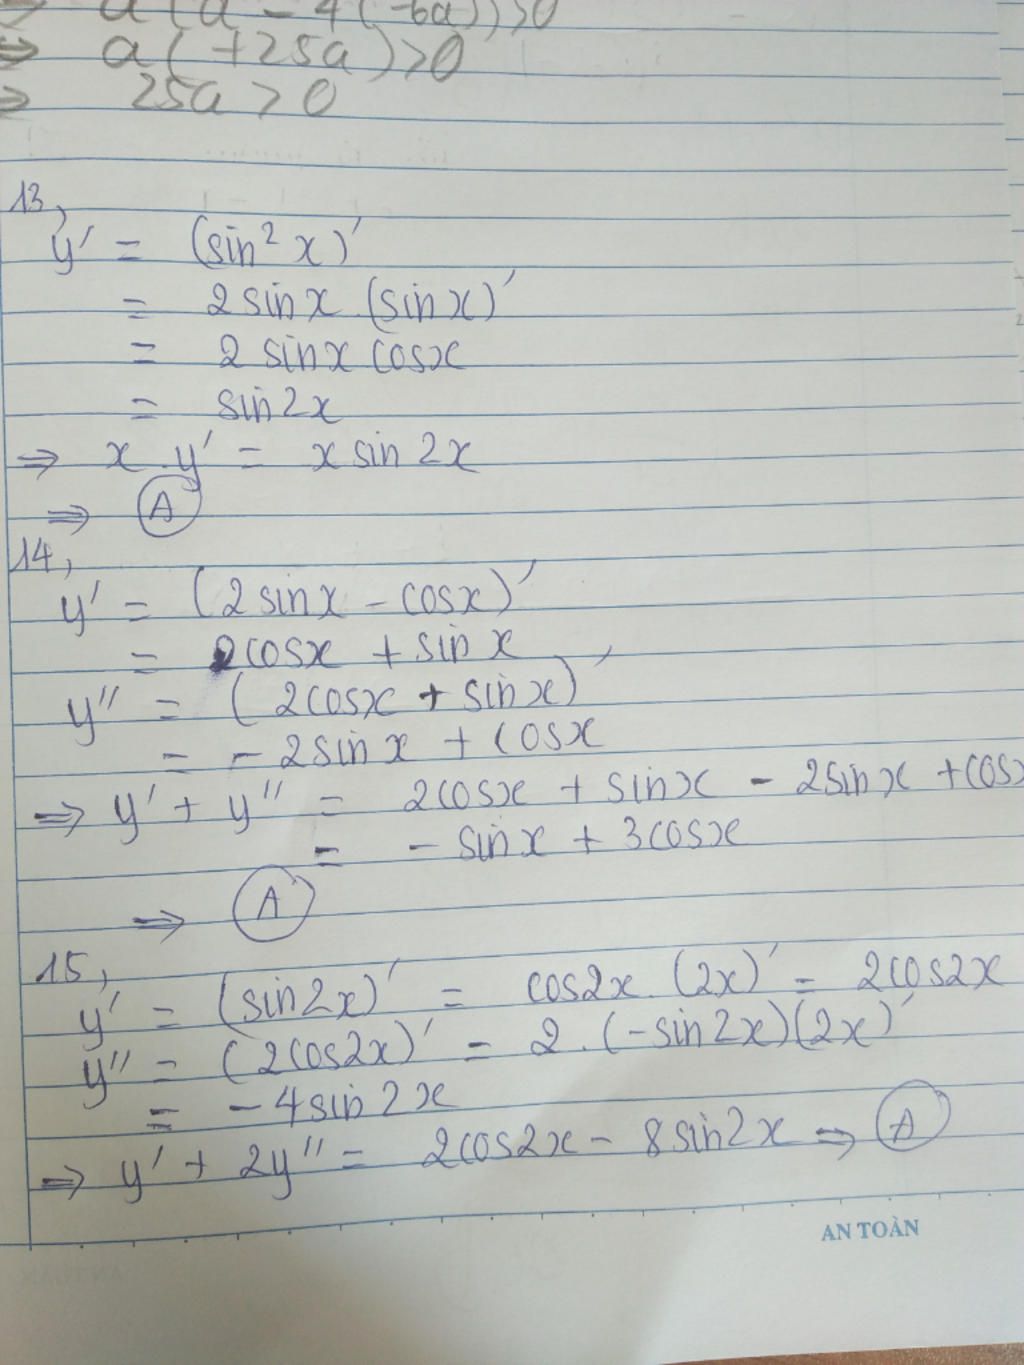 ⇒ a(a - 4(-6a)) > 0
⇔ a(+25a) > 0
⇒ 25a > 0
13,
y' = (sin² x)'
= 2 sin x . (sin x)'
= 2 sin x cos x
= sin 2x
⇒ x . y' = x sin 2x
⇒ A
14,
y' = (2 sin x - cos x)'
= 2cos x + sin x
y'' = (2cos x + sin x)'
= - 2 sin x + cos x
⇒ y' + y'' = 2cos x + sin x - 2 sin x + cos x
= - sin x + 3cos x
⇒ A
15,
y' = (sin 2x)' = cos 2x . (2x)' = 2cos 2x
y'' = (2cos 2x)' = 2 . (-sin 2x)(2x)'
= - 4 sin 2x
⇒ y' + 2y'' = 2cos 2x - 8 sin 2x ⇒ A
AN TOÀN